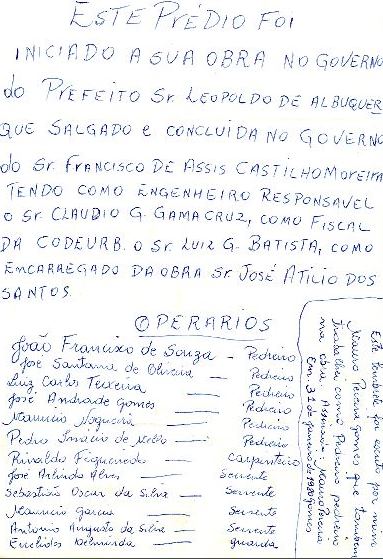 ESTE PRÉDIO FOI
INICIADO A SUA OBRA NO GOVERNO
do PREFEITO Sr. LEOPOLDO DE ALBUQUER
QUE SALGADO e CONCLUIDA NO GOVERNO
do Sr. FRANCISCO DE ASSIS CASTILHO MOREIRA
TENDO COMO ENGENHEIRO RESPONSAVEL
O Sr. CLAUDIO G. GAMA CRUZ, COMO FISCAL
DA CODEURB. O Sr. LUIZ G. BATISTA, COMO
ENCARREGADO DA OBRA Sr. JOSÉ ATILIO DOS
SANTOS.
OPERARIOS
João Francisco de Souza - Pedreiro
José Santana de Oliveira - Pedreiro
Luiz Carlos Teixeira - Pedreiro
José Andrade Gomes - Pedreiro
Mauricio Nogueira - Pedreiro
Pedro Inácio de Mello - Pedreiro
Rinaldo Figueiredo Carpenteiro
José Arlindo Alves - Servente
Sebastião Oscar da Silva - Servente
Mauricio Garcia - Servente
Antonio Augusto da Silva - Servente
Euclides Delminda - guarda
Este também foi escrito por mim
Mauro Pereira Gomes que também
trabalha como Pedreiro pedreiro
na obra. Assinria - Mauro Pereira
Em. 31 de janeiro de 1980 gomes